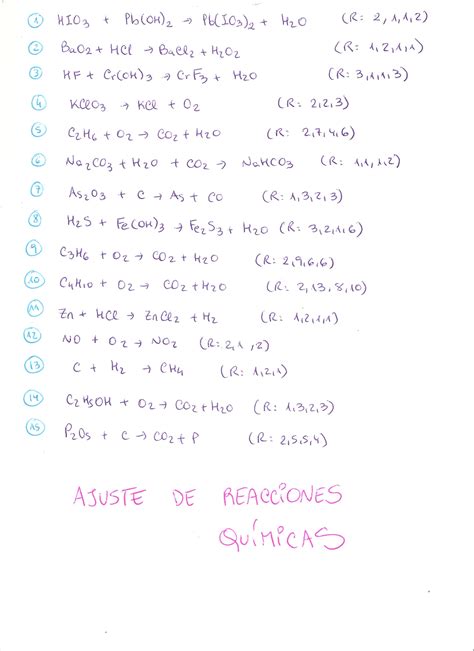 1 HIO3 + Pb(OH)2 → Pb(IO3)2 + H2O (R: 2,1,1,2)
2 BaO2 + HCl → BaCl2 + H2O2 (R: 1,2,1,1)
3 HF + Cr(OH)3 → CrF3 + H2O (R: 3,1,1,3)
4 KClO3 → KCl + O2 (R: 2,2,3)
5 C2H6 + O2 → CO2 + H2O (R: 2,7,4,6)
6 Na2CO3 + H2O + CO2 → NaHCO3 (R: 1,1,1,2)
7 As2O3 + C → As + CO (R: 1,3,2,3)
8 H2S + Fe(OH)3 → Fe2S3 + H2O (R: 3,2,1,6)
9 C3H6 + O2 → CO2 + H2O (R: 2,9,6,6)
10 C4H10 + O2 → CO2 + H2O (R: 2,13,8,10)
11 Zn + HCl → ZnCl2 + H2 (R: 1,2,1,1)
12 NO + O2 → NO2 (R: 2,1,2)
13 C + H2 → CH4 (R: 1,2,1)
14 C2H5OH + O2 → CO2 + H2O (R: 1,3,2,3)
15 P2O5 + C → CO2 + P (R: 2,5,5,4)
AJUSTE DE REACCIONES
QUÍMICAS